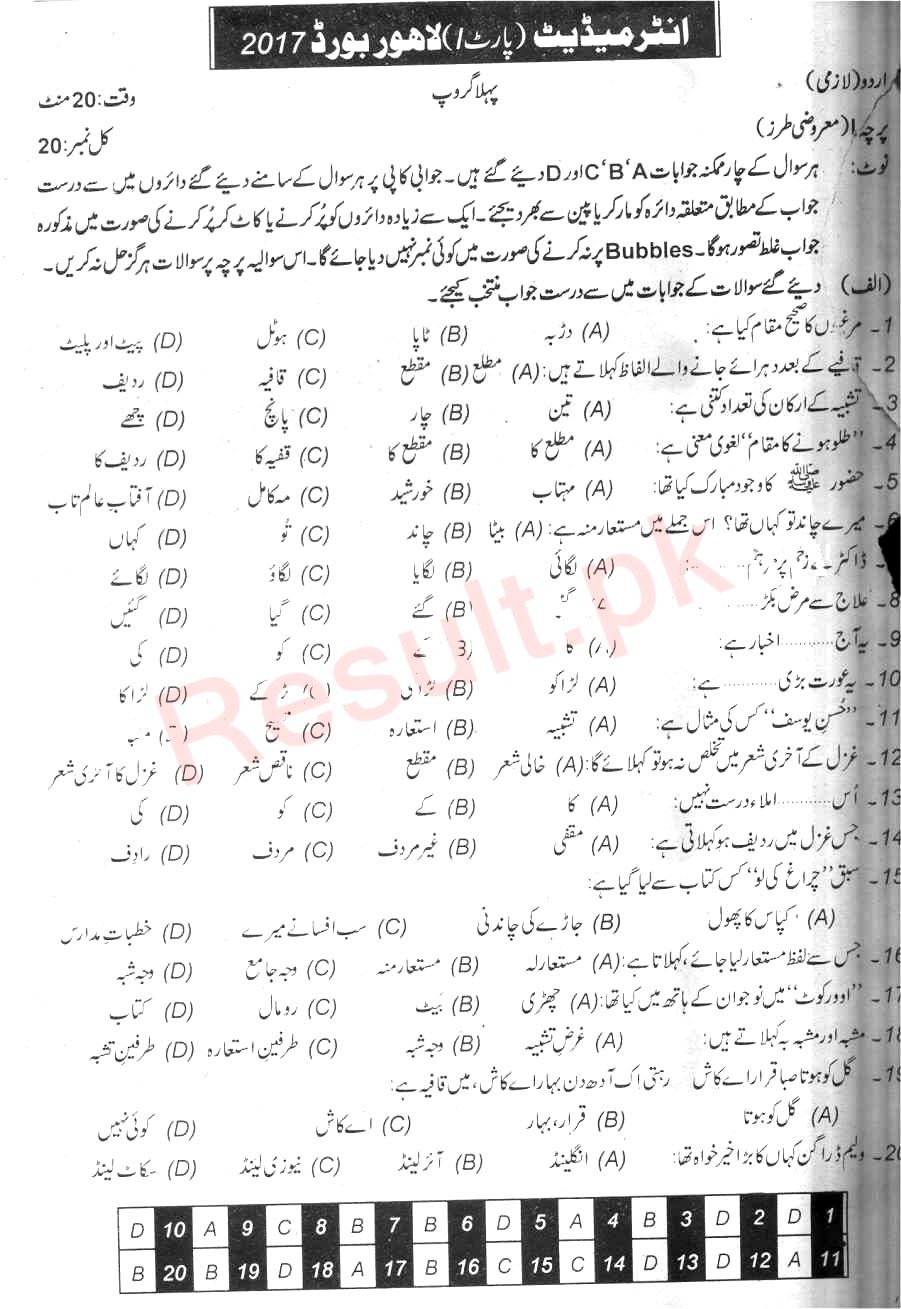 انٹرمیڈیٹ (پارٹ I) لاہور بورڈ 2017
اردو (لازمی) پہلا گروپ وقت: 20 منٹ
پرچہ I (معروضی طرز) کل نمبر: 20
نوٹ: ہر سوال کے چار ممکنہ جوابات C ' B ' A اور D دیئے گئے ہیں۔ جوابی کاپی پر ہر سوال کے سامنے دیئے گئے دائروں میں سے درست
جواب کے مطابق متعلقہ دائرہ کو مارکر یا پین سے بھر دیجئے۔ ایک سے زیادہ دائروں کو پُر کرنے یا کاٹ کر پُر کرنے کی صورت میں مذکورہ
جواب غلط تصور ہوگا۔ Bubbles پر نہ کرنے کی صورت میں کوئی نمبر نہیں دیا جائے گا۔ اس سوالیہ پرچہ پر سوالات ہرگز حل نہ کریں۔
(الف) دیئے گئے سوالات کے جوابات میں سے درست جواب منتخب کیجئے۔
1۔ مرغیوں کا صحیح مقام کیا ہے: (A) دڑبہ (B) ٹاپا (C) ہوٹل (D) پیٹ اور پلیٹ
2۔ قافیے کے بعد دہرائے جانے والے الفاظ کہلاتے ہیں: (A) مطلع (B) مقطع (C) قافیہ (D) ردیف
3۔ تشبیہ کے ارکان کی تعداد کتنی ہے: (A) تین (B) چار (C) پانچ (D) چھے
4۔ "طلو ہونے کا مقام" لغوی معنی ہے: (A) مطلع کا (B) مقطع کا (C) قفیہ کا (D) ردیف کا
5۔ حضور ﷺ کا وجود مبارک کیا تھا: (A) مہتاب (B) خورشید (C) مہ کامل (D) آفتاب عالم تاب
6۔ میرے چاند تو کہاں تھا؟ اس جملے میں مستعار منہ ہے: (A) بیٹا (B) چاند (C) تُو (D) کہاں
ڈاکٹر نے زخم پر مرہم ........: (A) لگائی (B) لگایا (C) لگاؤ (D) لگائے
8۔ علاج سے مرض بگڑ ........ (B) گئے (C) گیا (D) گئیں
9۔ یہ آج ........ اخبار ہے: (A) کا (B) کے (C) کو (D) کی
10۔ یہ عورت بڑی ........ ہے: (A) لڑاکو (B) لڑائی (C) لڑکے (D) لڑاکا
11۔ "حُسنِ یوسف" کس کی مثال ہے: (A) تشبیہ (B) استعارہ (C) تلمیح
12۔ غزل کے آخری شعر میں تخلص نہ ہو تو کہلائے گا: (A) خالی شعر (B) مقطع (C) ناقص شعر (D) غزل کا آخری شعر
13۔ اُس ........ املاء درست نہیں: (A) کا (B) کے (C) کو (D) کی
14۔ جس غزل میں ردیف ہو کہلاتی ہے: (A) مقفی (B) غیر مردف (C) مردف (D) رادِف
15۔ سبق "چراغ کی لو" کس کتاب سے لیا گیا ہے:
(A) کپاس کا پھول (B) جاڑے کی چاندنی (C) سب افسانے میرے (D) خطباتِ مدارس
16۔ جس سے لفظ مستعار لیا جائے، کہلاتا ہے: (A) مستعار لہ (B) مستعار منہ (C) وجہ جامع (D) وجہ شبہ
17۔ "اوورکوٹ" میں نوجوان کے ہاتھ میں کیا تھا: (A) چھڑی (B) ہیٹ (C) رومال (D) کتاب
18۔ مشبہ اور مشبہ بہ کہلاتے ہیں: (A) غرضِ تشبیہ (B) وجہ شبہ (C) طرفین استعارہ (D) طرفینِ تشبہ
19۔ گل کو ہوتا صبا قرار اے کاش رہتی اک آدھ دن بہار اے کاش، میں قافیہ ہے:
(A) گل کو ہوتا (B) قرار، بہار (C) اے کاش (D) کوئی نہیں
20۔ ولیم ڈراگن کہاں کا بڑا خیر خواہ تھا: (A) انگلینڈ (B) آئرلینڈ (C) نیوزی لینڈ (D) سکاٹ لینڈ
D 10 A 9 C 8 B 7 B 6 D 5 A 4 B 3 D 2 D 1
B 20 B 19 D 18 A 17 B 16 C 15 C 14 D 13 D 12 A 11
Result.pk